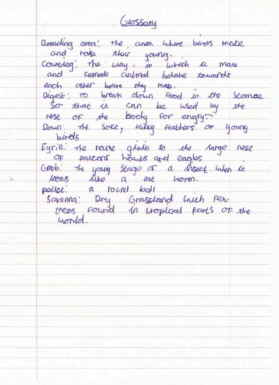 Glossary
Breeding area: the area where birds mate
and raise their young.
Courtship: The way in which a male
and female animal behave towards
each other before they mate.
Digest: to break down food in the stomach
so that it can be used by the
rest of the body for energy
Down: the soft, fluffy feathers of young
birds
Eyrie: The name given to the large nest
of falcons hawks and eagles
Grub: The young stage of a insect when it
looks like a worm.
pellet: a round ball
Savanna: Dry Grassland with few
trees found in tropical parts of the
world.